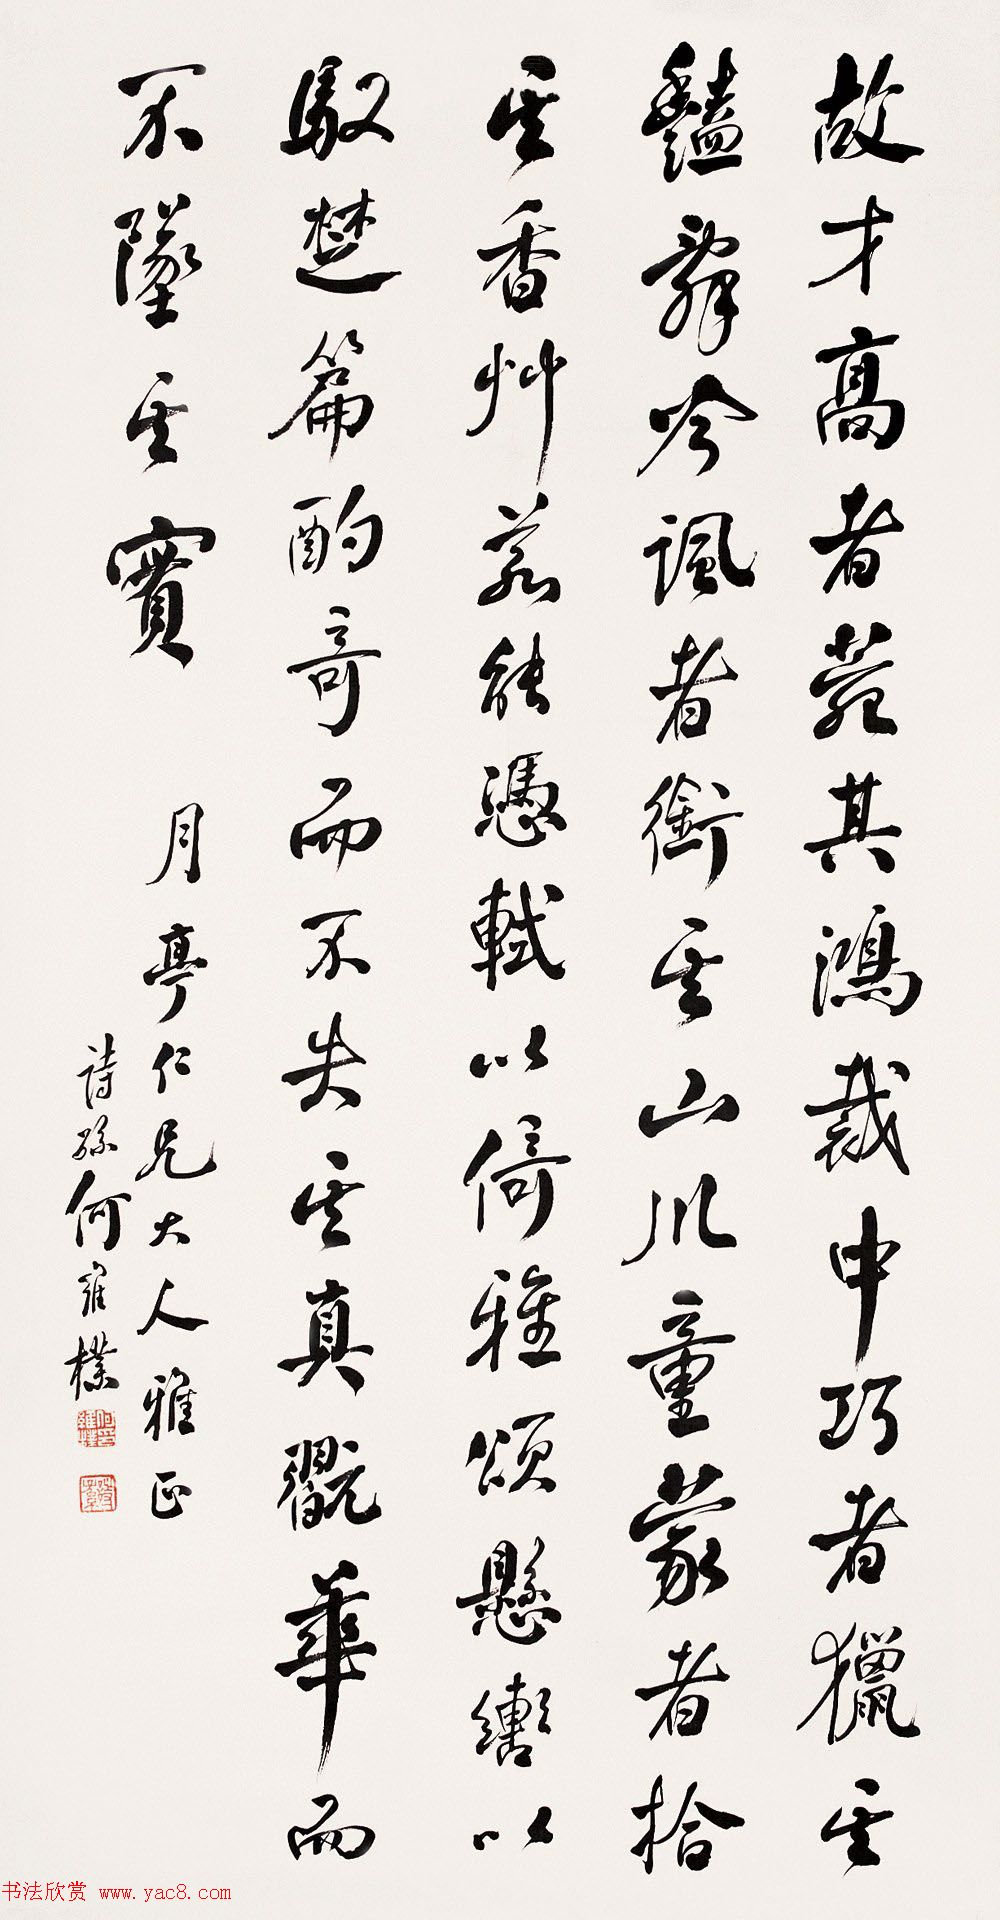 故才高者菀其鴻裁中巧者獵其
豔辭吟諷者銜其山川童蒙者拾
其香艸若能憑軾以倚雅頌懸轡以
馭楚篇酌奇而不失其真翫華而
不墜其實
月亭仁兄大人雅正
詩孫何維樸
何維樸
书法欣赏 www.yac8.com